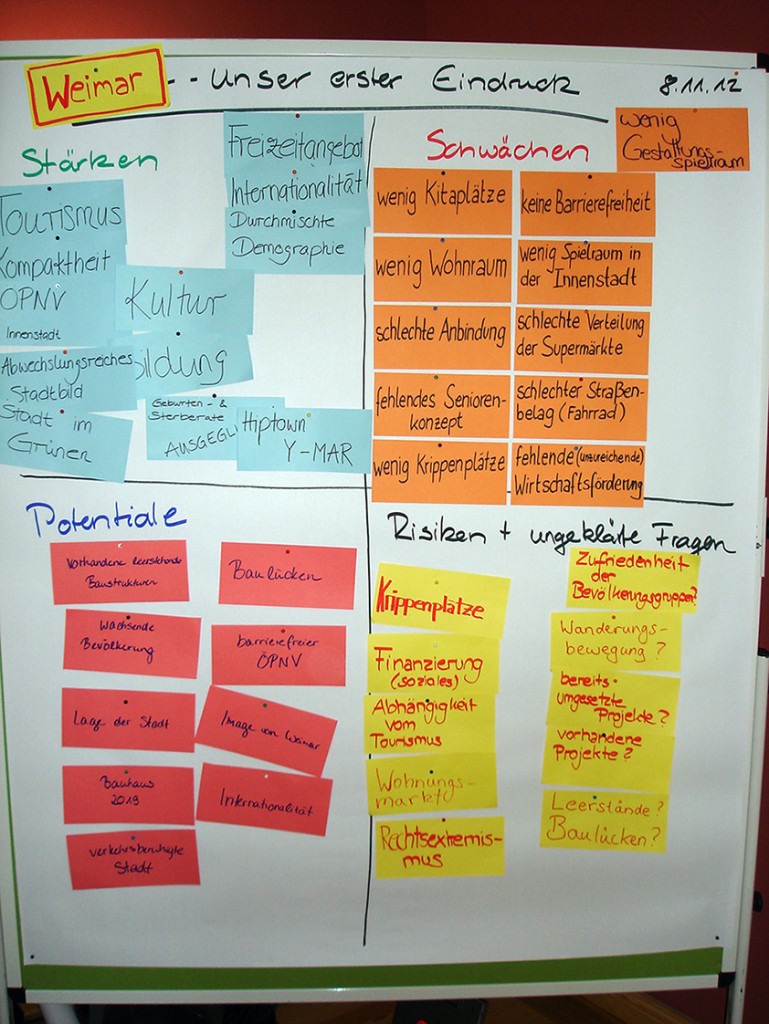 Weimar -- unser erster Eindruck 8.11.12
Stärken
Freizeitangebot
Internationalität
Durchmischte
Demographie
Tourismus
Kompaktheit
ÖPNV
Innenstadt
Kultur
Bildung
Abwechslungsreiches
Stadtbild
Stadt im
Grünen
Geburten- &
Sterberate
AUSGEGLI
Hiptown
Y-MAR
Schwächen
wenig
Gestaltungs-
spielraum
wenig Kitaplätze
keine Barrierefreiheit
wenig Wohnraum
wenig Spielraum in
der Innenstadt
schlechte Anbindung
schlechte Verteilung
der Supermärkte
fehlendes Senioren-
konzept
schlechter Straßen-
belag (Fahrrad)
wenig Krippenplätze
fehlende (unzureichende)
Wirtschaftsförderung
Potentiale
Vorhandene leerstehende
Baustrukturen
Baulücken
Wachsende
Bevölkerung
barrierefreier
ÖPNV
Lage der Stadt
Image von Weimar
Bauhaus
2019
Internationalität
verkehrsberuhigte
Stadt
Risiken + ungeklärte Fragen
Krippenplätze
Finanzierung
(soziales)
Abhängigkeit
vom
Tourismus
Wohnungs-
markt
Rechtsextremis-
mus
Zufriedenheit
der
Bevölkerungsgruppen?
Wanderungs-
bewegung?
bereits
umgesetzte
Projekte?
vorhandene
Projekte?
Leerstände?
Baulücken?